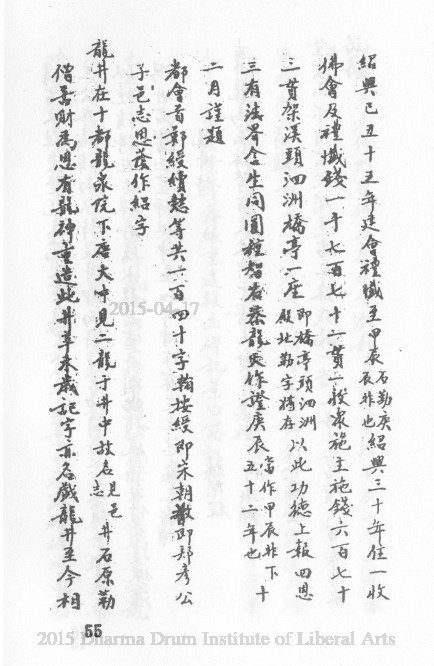 紹興己丑十五年建會禮懺至甲辰石勒庚辰非也紹興三十年住一收
佛會及禮懺錢一千七百七十二貫一收衆施主施錢六百七十
三貫架溪頭泗洲橋亭一座即橋亭頭泗洲殿北勤字猶存以此功德上報四恩
三有法界含生同圓種智者泰龍 作證庚辰當作甲辰非下五十二年也十
二月謹題
都會首鄭綬續慧等共一百四十字翰按綬即宋朝散即鄭彥公
子邑志恩蔭作紹字
龍井在十都龍泉院下唐大中見二龍于井中故名見邑志井石原勒
僧善財為恩有龍神重造此井辛未歲記字亦名戲龍井至今相
55
2015-04-17
2015 Dharma Drum Institute of Liberal Arts